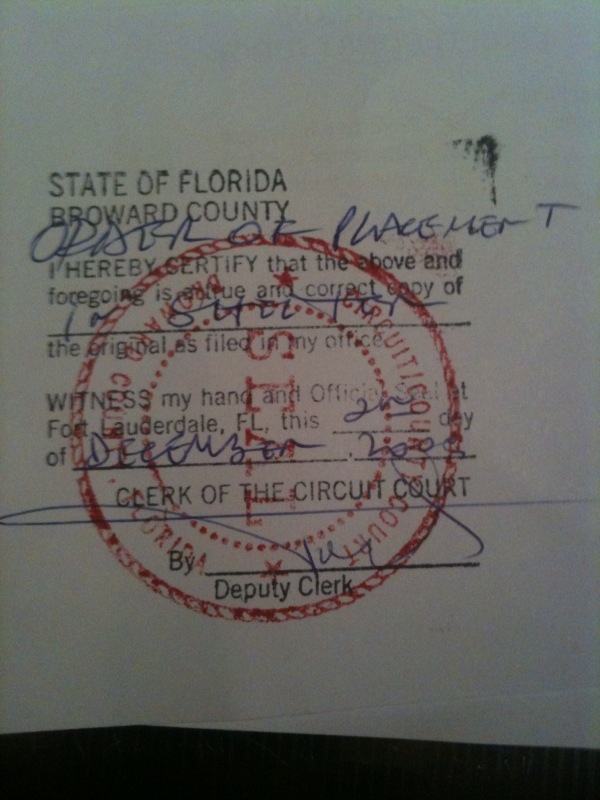 STATE OF FLORIDA
BROWARD COUNTY
ORDER OF PLACEMENT
I HEREBY CERTIFY that the above and
foregoing is a true and correct copy of
in SHELTER
the original as filed in my office.
WITNESS my hand and Official Seal at
Fort Lauderdale, FL, this day
of DECEMBER,
CLERK OF THE CIRCUIT COURT
By
Deputy Clerk
CIRCUIT COURT
BROWARD COUNTY
FLORIDA